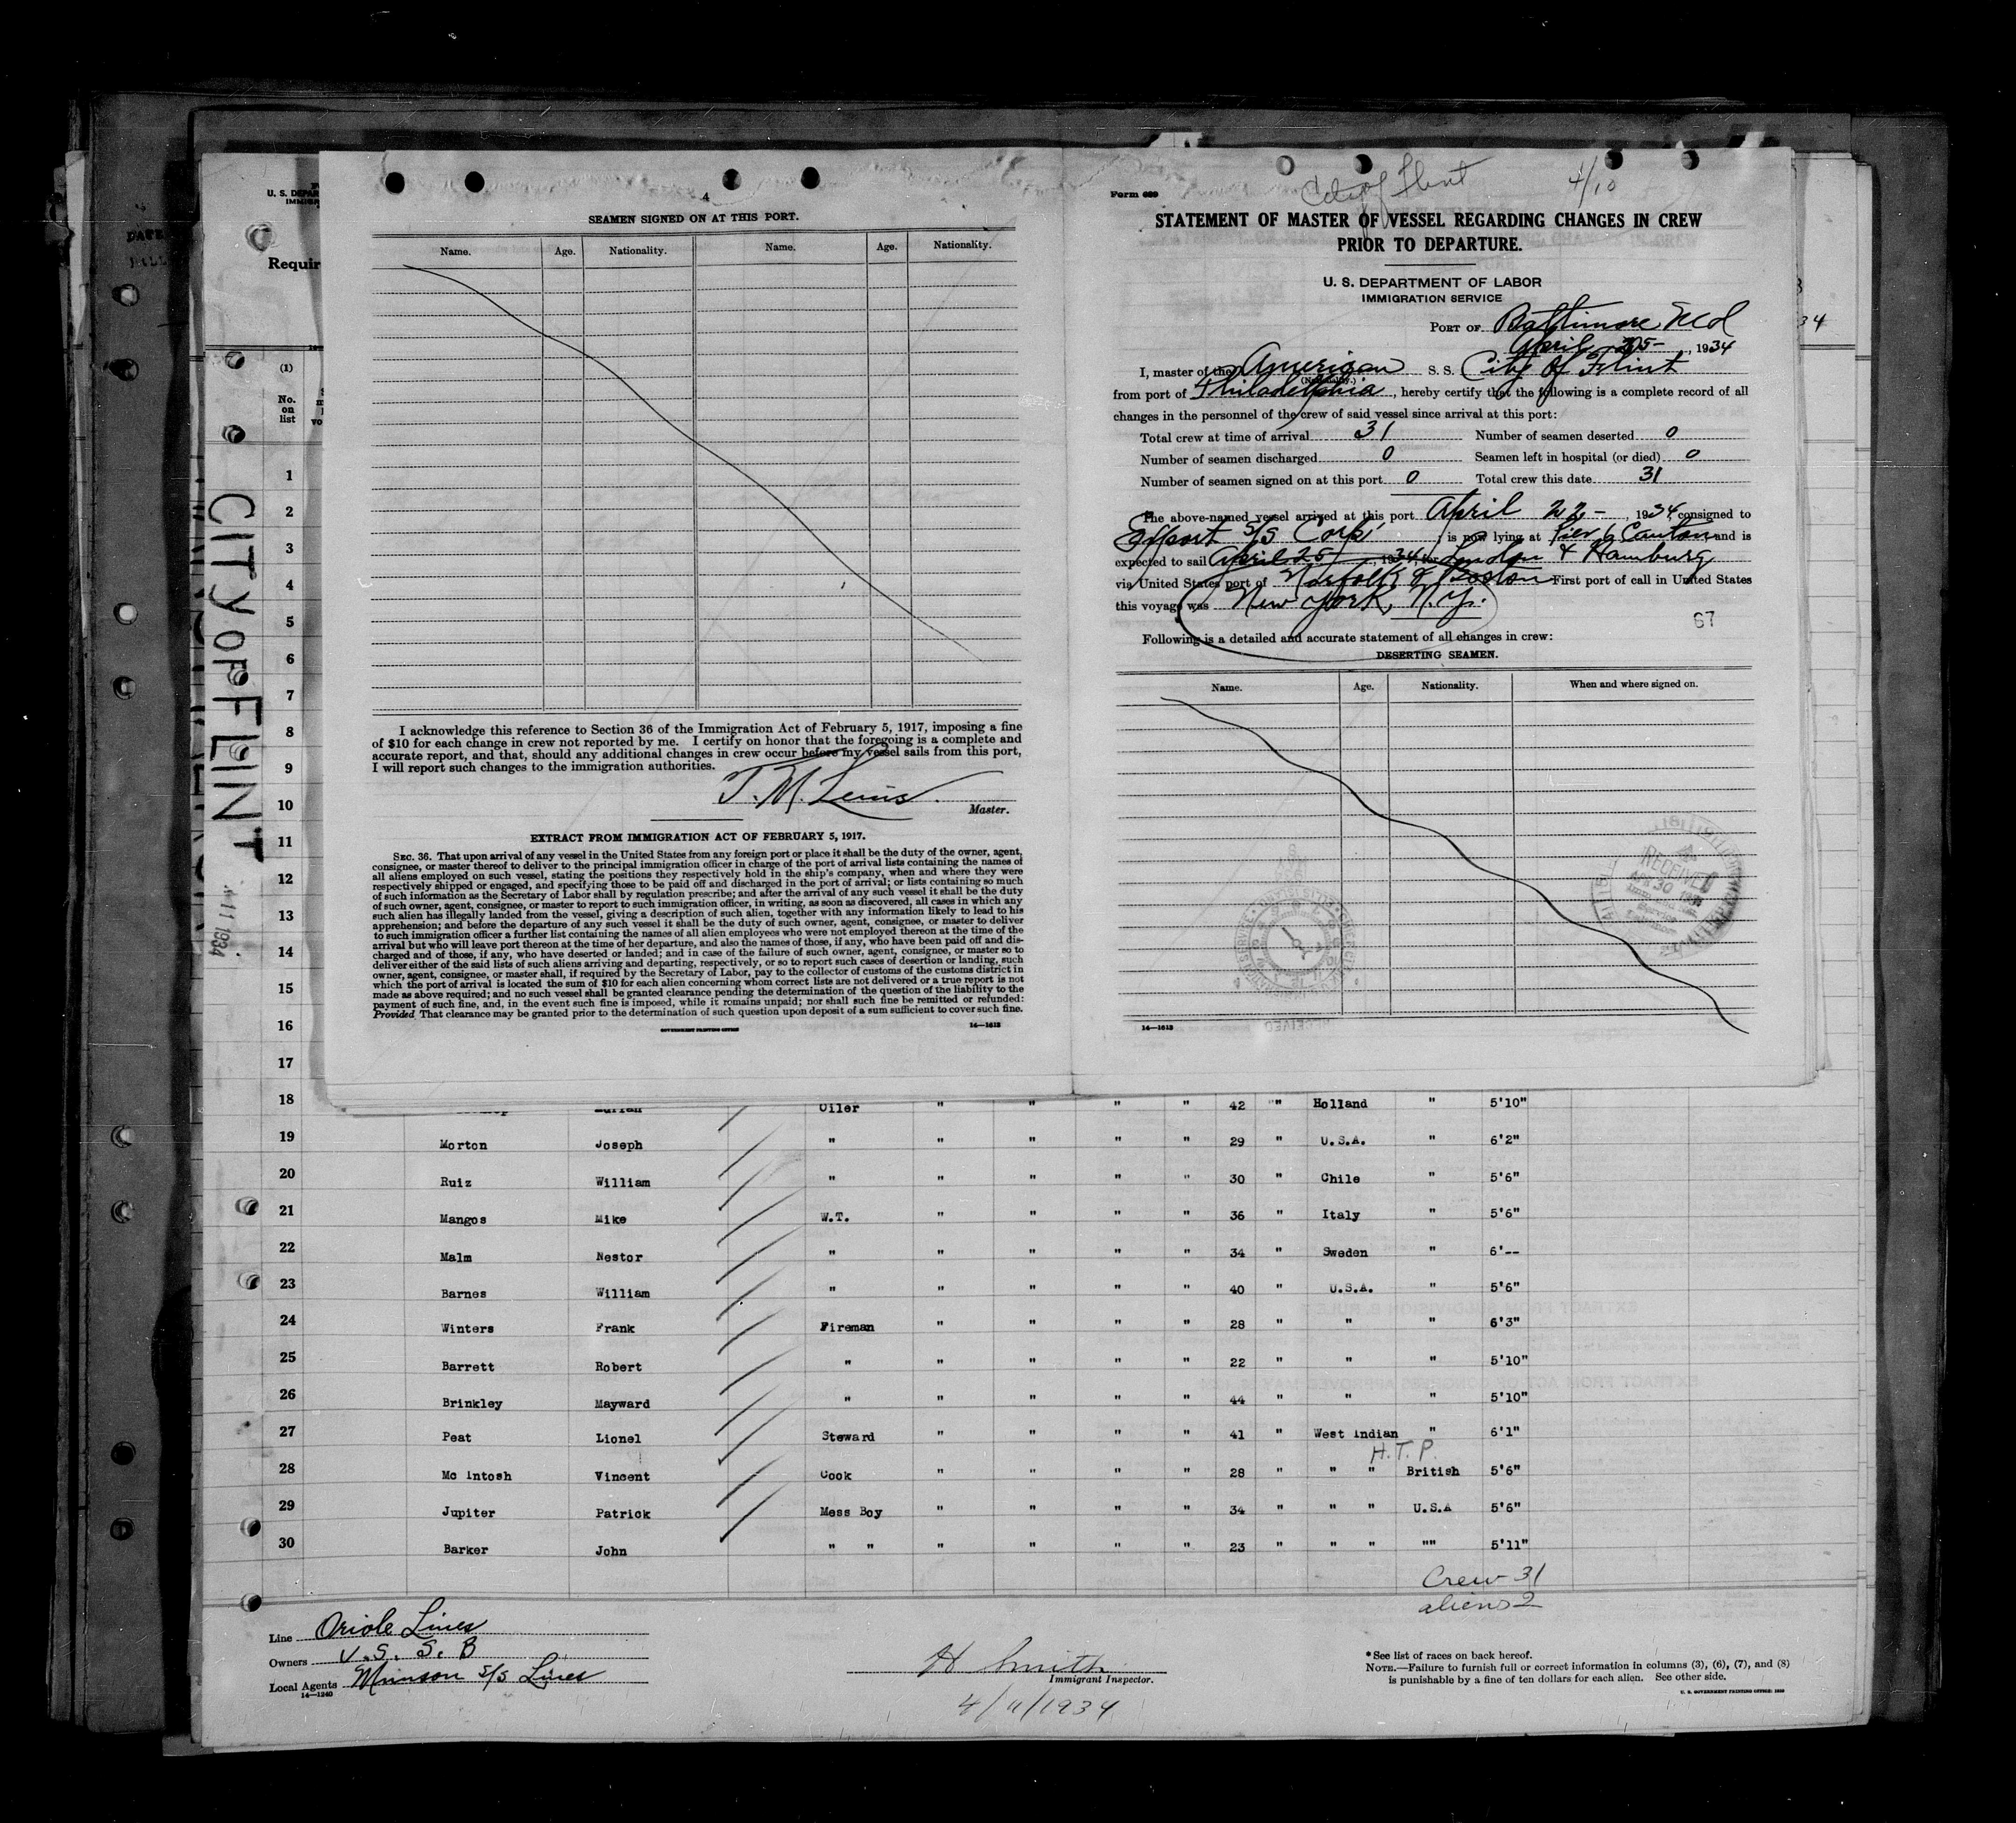 4
SEAMEN SIGNED ON AT THIS PORT.
Name. Age. Nationality. Name. Age. Nationality.
I acknowledge this reference to Section 36 of the Immigration Act of February 5, 1917, imposing a fine
of $10 for each change in crew not reported by me. I certify on honor that the foregoing is a complete and
accurate report, and that, should any additional changes in crew occur before my vessel sails from this port,
I will report such changes to the immigration authorities.
T. M. Lewis
Master.
EXTRACT FROM IMMIGRATION ACT OF FEBRUARY 5, 1917.
SEC. 36. That upon arrival of any vessel in the United States from any foreign port or place it shall be the duty of the owner, agent,
consignee, or master thereof to deliver to the principal immigration officer in charge of the port of arrival lists containing the names of
all aliens employed on such vessel, stating the positions they respectively hold in the ship's company, when and where they were
respectively shipped or engaged, and specifying those to be paid off and discharged in the port of arrival; or lists containing so much
of such information as the Secretary of Labor shall by regulation prescribe; and after the arrival of any such vessel it shall be the duty
of such owner, agent, consignee, or master to report to such immigration officer, in writing, as soon as discovered, all cases in which any
such alien has illegally landed from the vessel, giving a description of such alien, together with any information likely to lead to his
apprehension; and before the departure of any such vessel it shall be the duty of such owner, agent, consignee, or master to deliver
to such immigration officer a further list containing the names of all alien employees who were not employed thereon at the time of the
arrival but who will leave port thereon at the time of her departure, and also the names of those, if any, who have been paid off and dis-
charged and of those, if any, who have deserted or landed; and in case of the failure of such owner, agent, consignee, or master so to
deliver either of the said lists of such aliens arriving and departing, respectively, or so to report such cases of desertion or landing, such
owner, agent, consignee, or master shall, if required by the Secretary of Labor, pay to the collector of customs of the customs district in
which the port of arrival is located the sum of $10 for each alien concerning whom correct lists are not delivered or a true report is not
made as above required; and no such vessel shall be granted clearance pending the determination of the question of the liability to the
payment of such fine, and, in the event such fine is imposed, while it remains unpaid; nor shall such fine be remitted or refunded:
Provided, That clearance may be granted prior to the determination of such question upon deposit of a sum sufficient to cover such fine.
GOVERNMENT PRINTING OFFICE 14—1613
City of Flint 4/10
Form 689
STATEMENT OF MASTER OF VESSEL REGARDING CHANGES IN CREW
PRIOR TO DEPARTURE.
U. S. DEPARTMENT OF LABOR
IMMIGRATION SERVICE
PORT OF Baltimore, Md
April 25-, 1934
I, master of the American S. S. City of Flint
(Nationality.)
from port of Philadelphia, hereby certify that the following is a complete record of all
changes in the personnel of the crew of said vessel since arrival at this port:
Total crew at time of arrival 31 Number of seamen deserted 0
Number of seamen discharged 0 Seamen left in hospital (or died) 0
Number of seamen signed on at this port 0 Total crew this date 31
The above-named vessel arrived at this port April 22-, 1934, consigned to
Export S/S Corp., is now lying at Pier 6 Canton and is
expected to sail April 25, 1934, for London & Hamburg
via United States port of Norfolk & Boston First port of call in United States
this voyage was New York, N.Y.
67
Following is a detailed and accurate statement of all changes in crew:
DESERTING SEAMEN.
Name. Age. Nationality. When and where signed on.
RECEIVED
APR 30
14—1613
U. S. DEPAR
IMMIGR
Requir
(1)
No.
on
list
34
CITY OF FLINT
11 1934
1
2
3
4
5
6
7
8
9
10
11
12
13
14
15
16
17
18 Oiler " " " " 42 " Holland " 5'10"
19 Morton Joseph " " " " " 29 " U.S.A. " 6'2"
20 Ruiz William " " " " " 30 " Chile " 5'6"
21 Mangos Mike W.T. " " " " 36 " Italy " 5'6"
22 Malm Nestor " " " " " 34 " Sweden " 6'--
23 Barnes William " " " " " 40 " U.S.A. " 5'6"
24 Winters Frank Fireman " " " " 28 " " " 6'3"
25 Barrett Robert " " " " " 22 " " " 5'10"
26 Brinkley Mayward " " " " " 44 " " " 5'10"
27 Peat Lionel Steward " " " " 41 " West Indian " 6'1"
H.T.P.
28 Mc Intosh Vincent Cook " " " " 28 " " " British 5'6"
29 Jupiter Patrick Mess Boy " " " " 34 " " " U.S.A 5'6"
30 Barker John " " " " " " 23 " " " "" 5'11"
Crew 31
aliens 2
Line Oriole Lines
Owners U.S.S.B
Local Agents Munson S/S Lines
14—1240
H Smith
Immigrant Inspector.
4/11/1934
* See list of races on back hereof.
NOTE.—Failure to furnish full or correct information in columns (3), (6), (7), and (8)
is punishable by a fine of ten dollars for each alien. See other side.
U. S. GOVERNMENT PRINTING OFFICE: 1930